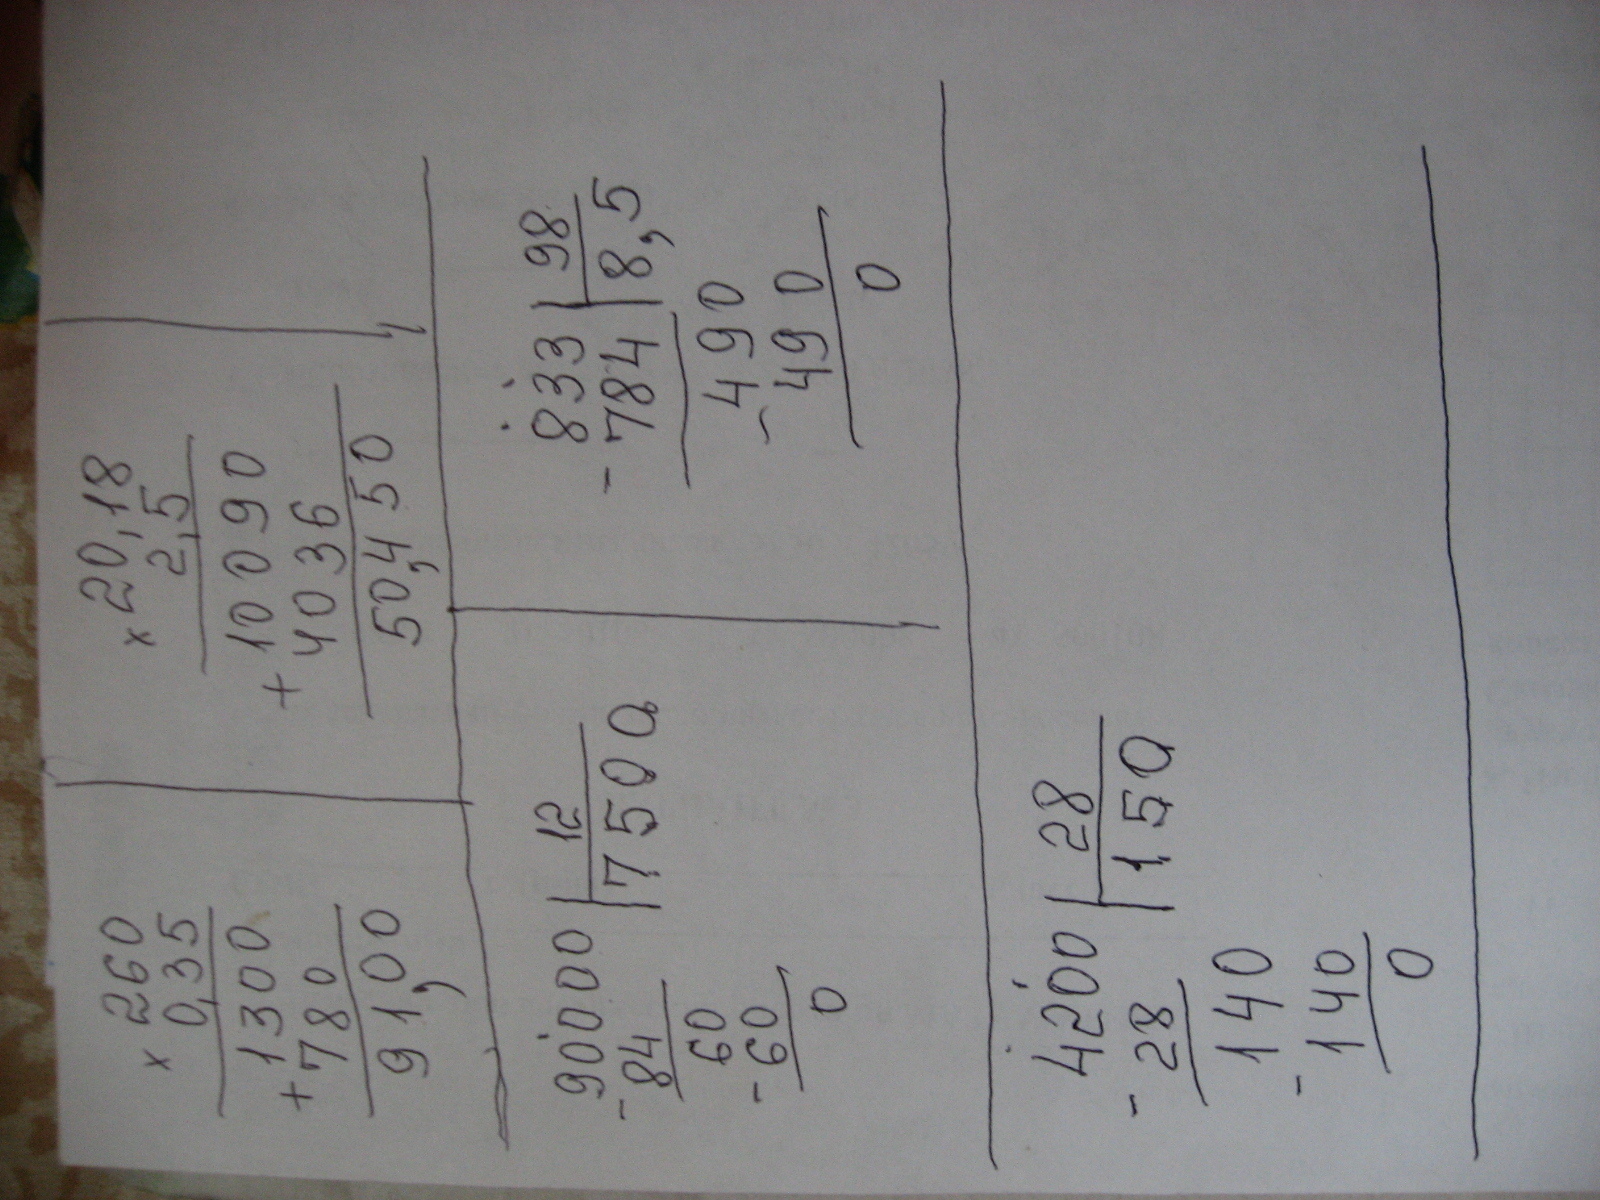 × 260
0,35
1300
+ 780
91,00
× 20,18
2,5
10090
+ 4036
50,450
90000 | 12
- 84 | 7500
60
- 60
0
833 | 98
- 784 | 8,5
490
- 490
0
4200 | 28
- 28 | 150
140
- 140
0